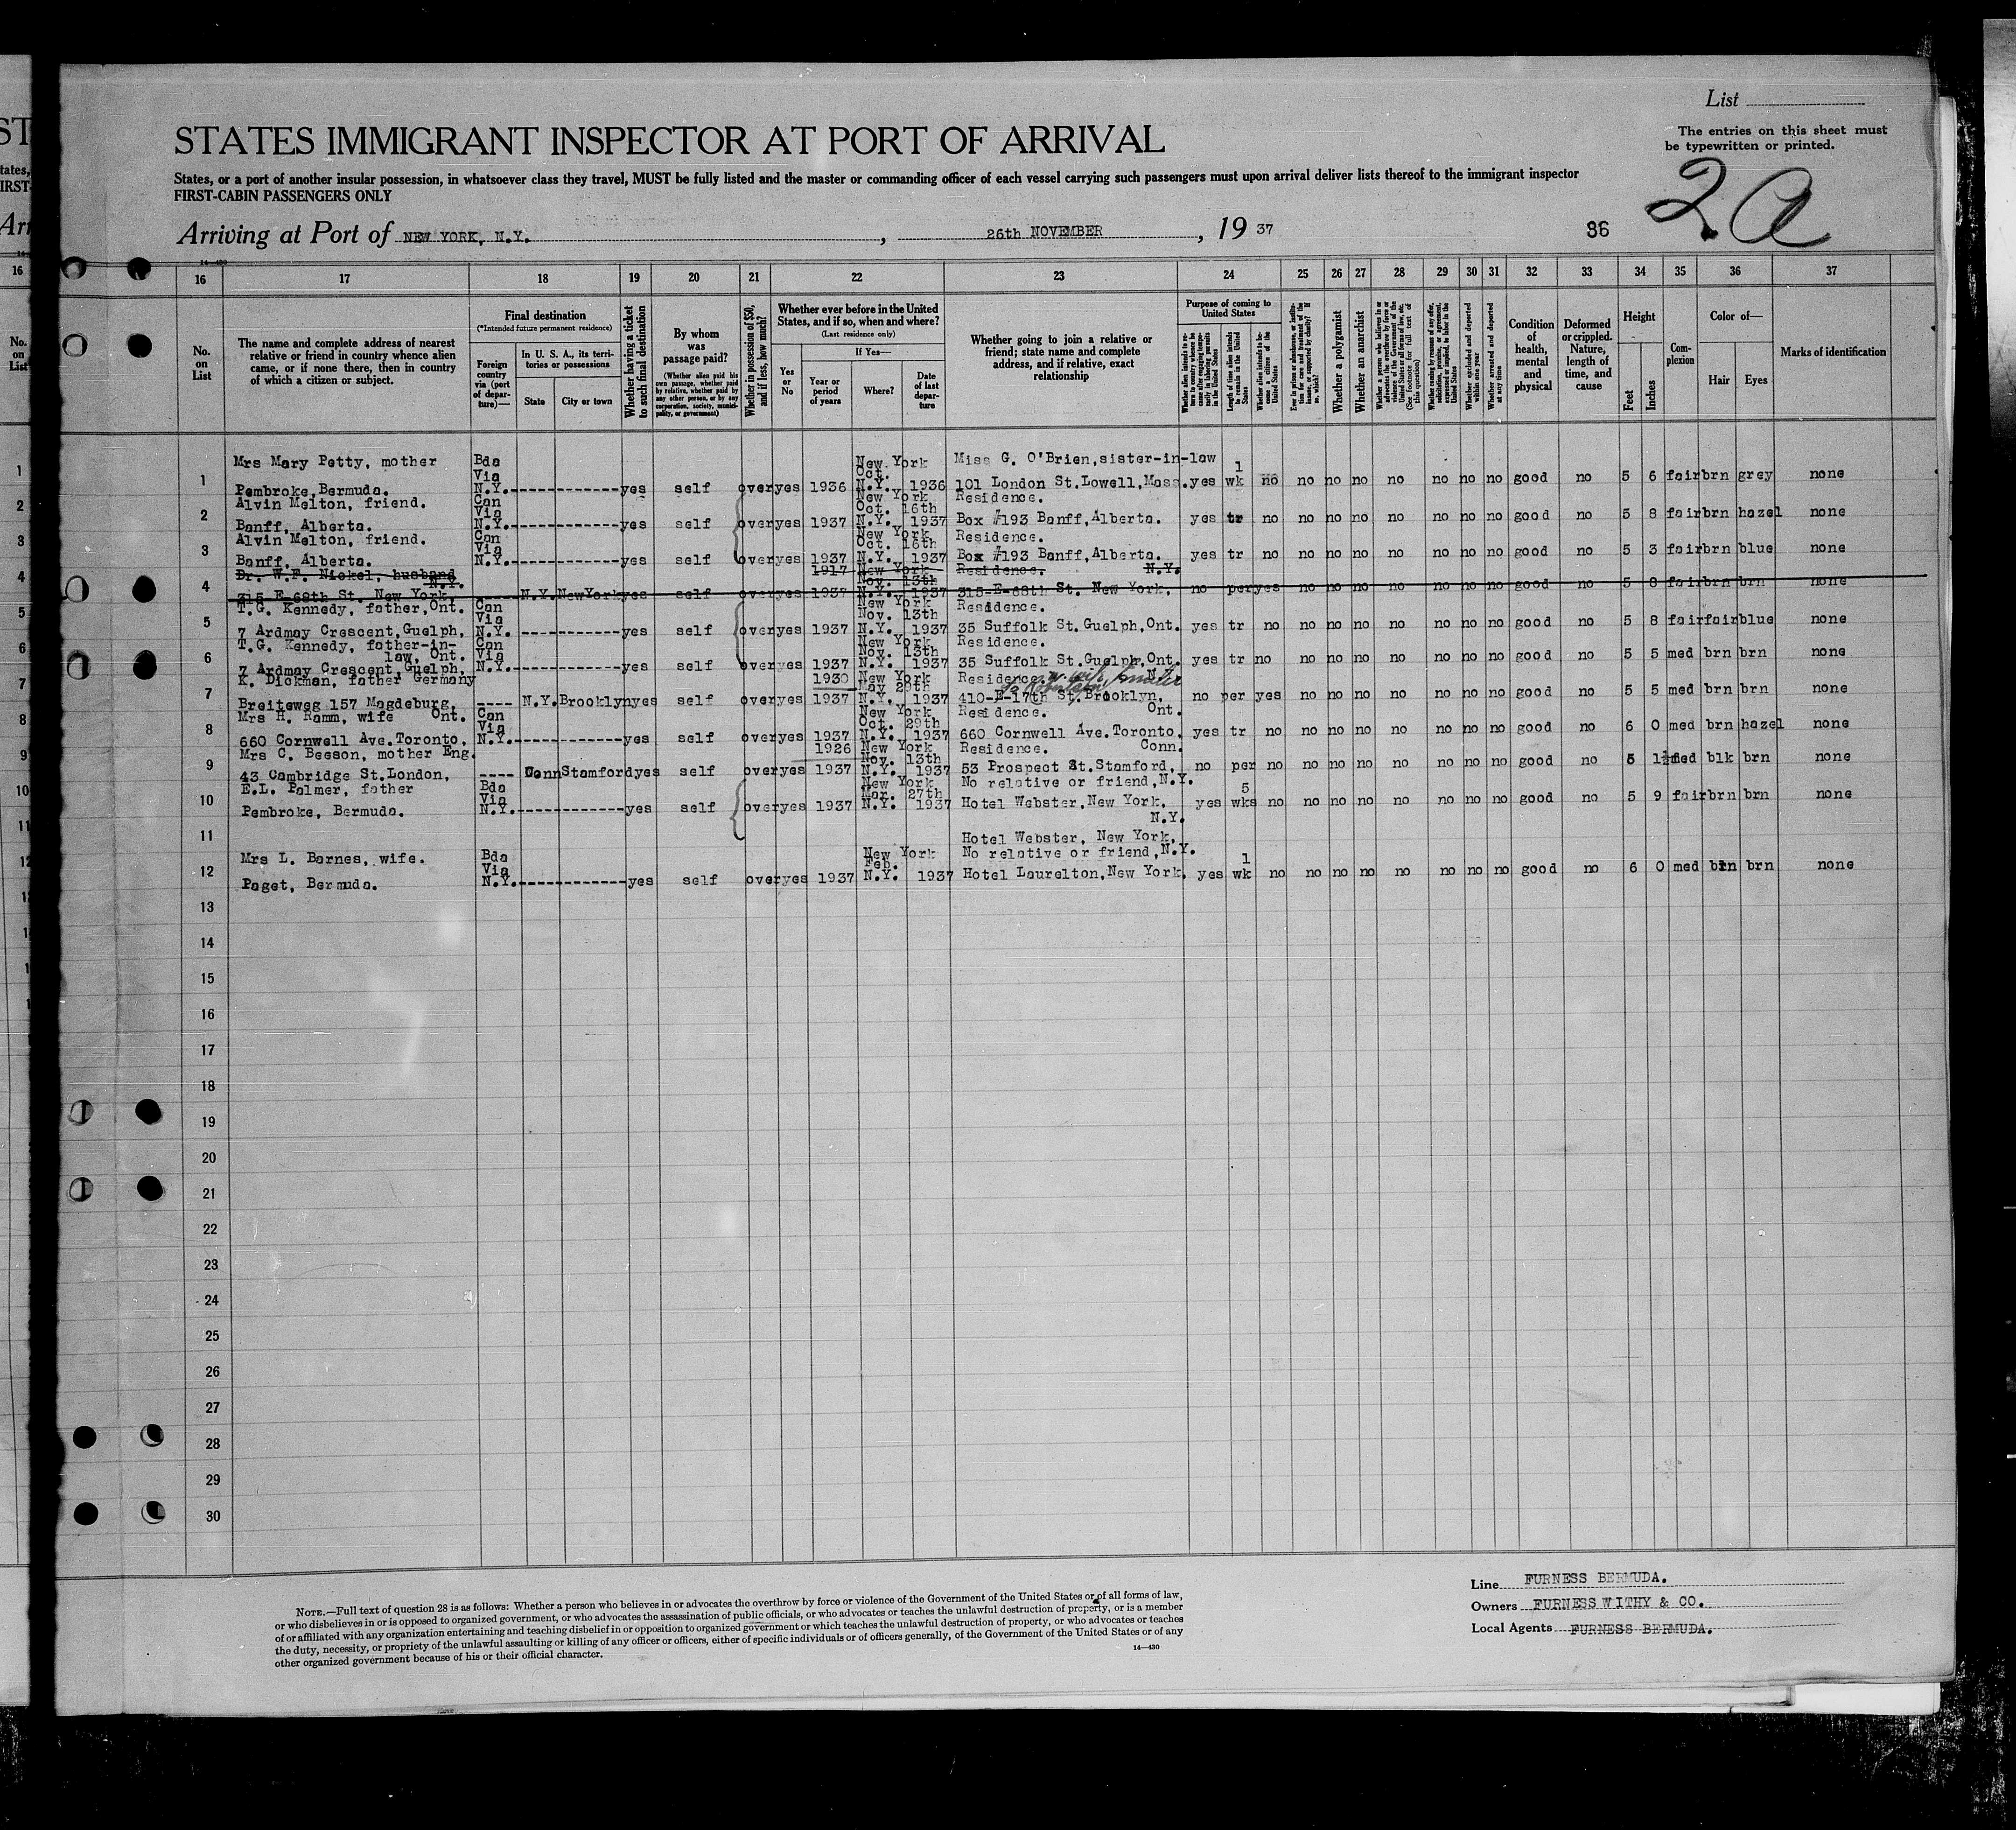 List
The entries on this sheet must
be typewritten or printed.
STATES IMMIGRANT INSPECTOR AT PORT OF ARRIVAL
States, or a port of another insular possession, in whatsoever class they travel, MUST be fully listed and the master or commanding officer of each vessel carrying such passengers must upon arrival deliver lists thereof to the immigrant inspector
FIRST-CABIN PASSENGERS ONLY
2 A
Arriving at Port of NEW YORK, N.Y. , 26th NOVEMBER , 19 37
36
16 17 18 19 20 21 22 23 24 25 26 27 28 29 30 31 32 33 34 35 36 37
No. on List
The name and complete address of nearest relative or friend in country whence alien came, or if none there, then in country of which a citizen or subject.
Final destination
(*Intended future permanent residence)
Foreign country via (port of departure)—
In U. S. A., its territories or possessions
State
City or town
Whether having a ticket to such final destination
By whom was passage paid?
(Whether alien paid his own passage, whether paid by relative, whether paid by any other person, or by any corporation, society, municipality, or government)
Whether in possession of $50, and if less, how much?
Whether ever before in the United States, and if so, when and where?
(Last residence only)
Yes or No
If Yes—
Year or period of years
Where?
Date of last departure
Whether going to join a relative or friend; state name and complete address, and if relative, exact relationship
Purpose of coming to United States
Length of time alien intends to remain in the United States
Whether alien intends to become a citizen of the United States
Whether a polygamist
Whether an anarchist
Whether excluded and deported within one year
Whether arrested and deported at any time
Condition of health, mental and physical
Deformed or crippled. Nature, length of time, and cause
Height
Feet
Inches
Complexion
Color of—
Hair
Eyes
Marks of identification
1 Mrs Mary Petty, mother Pembroke, Bermuda. Bda Via N.Y. yes self over yes 1936 New York N.Y. Oct. 1936 Miss G. O'Brien, sister-in-law 101 London St. Lowell, Mass. yes 1 wk no no no no no no no no good no 5 6 fair brn grey none
2 Alvin Melton, friend. Banff, Alberta. Can Via N.Y. yes self over yes 1937 New York N.Y. Oct. 16th 1937 Residence. Box #193 Banff, Alberta. yes tr no no no no no no no no good no 5 8 fair brn hazel none
3 Alvin Melton, friend. Banff, Alberta. Can Via N.Y. yes self over yes 1937 New York N.Y. Oct. 16th 1937 Residence. Box #193 Banff, Alberta. yes tr no no no no no no no no good no 5 3 fair brn blue none
4 Dr. W.F. Nickel, husband 315 E-68th St. New York, N.Y. ---- N.Y. NewYork yes self over yes 1917 1937 New York N.Y. Nov. 13th 1937 Residence. 315-E-68th St. New York, N.Y. no per yes no no no no no no no good no 5 8 fair brn brn none
5 T.G. Kennedy, father, Ont. 7 Ardmay Crescent, Guelph, Can Via N.Y. yes self over yes 1937 New York N.Y. Nov. 13th 1937 Residence. 35 Suffolk St. Guelph, Ont. yes tr no no no no no no no no good no 5 8 fair fair blue none
6 T.G. Kennedy, father-in-law, Ont. 7 Ardmay Crescent, Guelph, Can Via N.Y. yes self over yes 1937 New York N.Y. Nov. 13th 1937 Residence. 35 Suffolk St. Guelph, Ont. yes tr no no no no no no no no good no 5 5 med brn brn none
7 K. Dickman, father Germany Breiteweg 157 Magdeburg, ---- N.Y. Brooklyn yes self over yes 1930 1937 New York N.Y. May 29th 1937 Residence. 410-E-17th St. Brooklyn, N.Y. no per yes no no no no no no no good no 5 5 med brn brn none
8 Mrs H. Ramm, wife Ont. 660 Cornwell Ave. Toronto, Can Via N.Y. yes self over yes 1937 New York N.Y. Oct. 29th 1937 Residence. 660 Cornwell Ave. Toronto, Ont. yes tr no no no no no no no no good no 6 0 med brn hazel none
9 Mrs C. Beeson, mother Eng. 43 Cambridge St. London, ---- Conn Stamford yes self over yes 1926 1937 New York N.Y. Nov. 13th 1937 Residence. 53 Prospect St. Stamford, Conn. no per no no no no no no no no good no 5 1½ med blk brn none
10 E.L. Palmer, father Pembroke, Bermuda. Bda Via N.Y. yes self over yes 1937 New York N.Y. Mar. 27th 1937 No relative or friend, N.Y. Hotel Webster, New York, N.Y. yes 5 wks no no no no no no no no good no 5 9 fair brn brn none
11 Hotel Webster, New York,
12 Mrs L. Barnes, wife. Paget, Bermuda. Bda Via N.Y. yes self over yes 1937 New York N.Y. Feb. 1937 No relative or friend, N.Y. Hotel Laurelton, New York, yes 1 wk no no no no no no no no good no 6 0 med brn brn none
13
14
15
16
17
18
19
20
21
22
23
24
25
26
27
28
29
30
NOTE.—Full text of question 28 is as follows: Whether a person who believes in or advocates the overthrow by force or violence of the Government of the United States or of all forms of law,
or who disbelieves in or is opposed to organized government, or who advocates the assassination of public officials, or who advocates or teaches the unlawful destruction of property, or is a member
of or affiliated with any organization entertaining and teaching disbelief in or opposition to organized government or which teaches the unlawful destruction of property, or who advocates or teaches
the duty, necessity, or propriety of the unlawful assaulting or killing of any officer or officers, either of specific individuals or of officers generally, of the Government of the United States or of any
other organized government because of his or their official character.
14—430
Line FURNESS BERMUDA.
Owners FURNESS WITHY & CO.
Local Agents FURNESS BERMUDA.